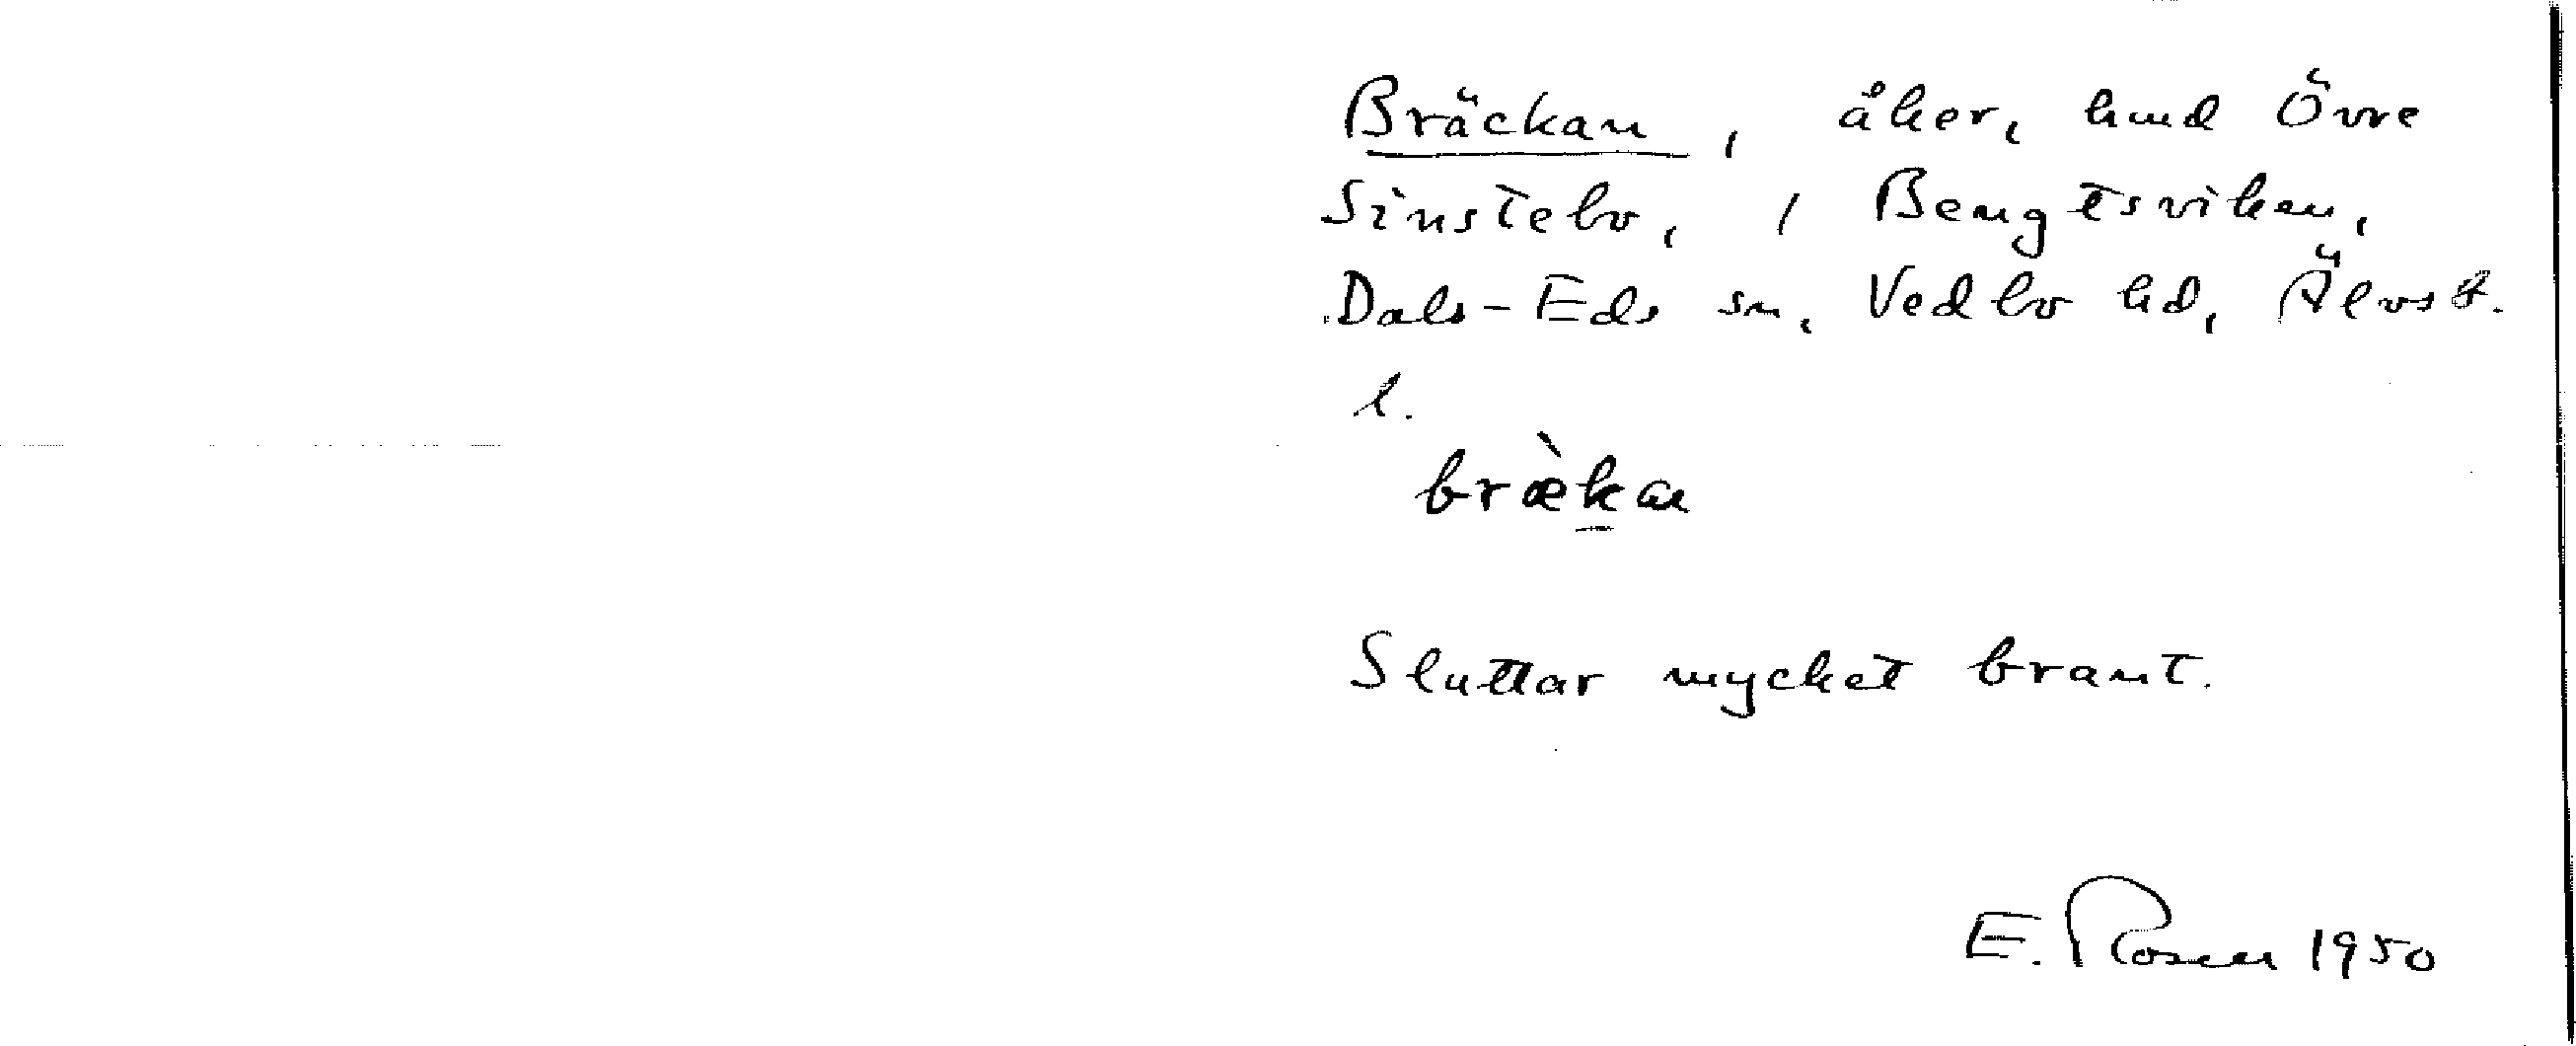 Bräckan, åker, hmd Övre
Sinstebo, 1 Bengtsviken,
Dals-Eds sn, Vedbo hd, Älvsb.
l.
brækan
Sluttar mycket brant.
E. Rosen 1950